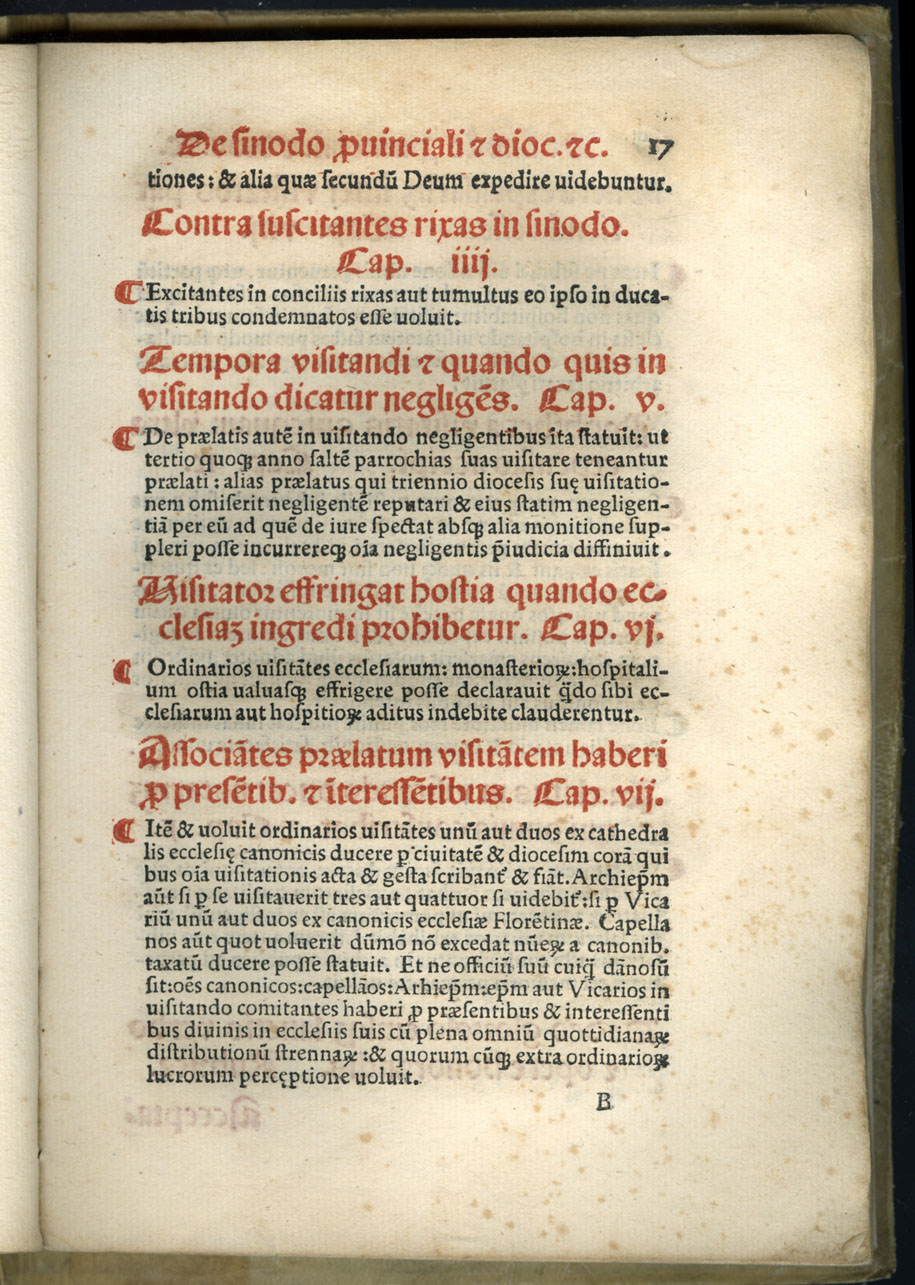 De sinodo ꝓuinciali ⁊ dioc. ⁊c. 17
tiones: & alia quæ secundū Deum expedire uidebuntur.
Contra suscitantes rixas in sinodo.
Cap. iiij.
¶ Excitantes in conciliis rixas aut tumultus eo ipso in duca-
tis tribus condemnatos esse uoluit.
Tempora visitandi ⁊ quando quis in
visitando dicatur negligēs. Cap. v.
¶ De prælatis autē in uisitando negligentibus ita statuit: ut
tertio quoqꝫ anno saltē parrochias suas uisitare teneantur
prælati: alias prælatus qui triennio diocesis suę uisitatio-
nem omiserit negligentē reputari & eius statim negligen-
tiā per eū ad quē de iure spectat absqꝫ alia monitione sup-
pleri posse incurrereqꝫ oīa negligentis p̄iudicia diffiniuit.
Visitator effringat hostia quando ec-
clesiaꝫ ingredi prohibetur. Cap. vj.
¶ Ordinarios uisitātes ecclesiarum: monasterioꝝ: hospitali-
um ostia ualuasqꝫ effrigere posse declarauit q̄do sibi ec-
clesiarum aut hospitioꝝ aditus indebite clauderentur.
Associātes prælatum visitātem haberi
ꝓ presētib. ⁊ īteressētibus. Cap. vij.
¶ Itē & uoluit ordinarios uisitātes unū aut duos ex cathedra
lis ecclesię canonicis ducere ꝑ ciuitatē & diocesim corā qui
bus oīa uisitationis acta & gesta scribant᷑ & fiāt. Archiep̄m
aūt si ꝑ se uisitauerit tres aut quattuor si uidebit᷑: si ꝑ Vica
riū unū aut duos ex canonicis ecclesiæ Florētinæ. Capella
nos aūt quot uoluerit dūmō nō excedat nūeꝝ a canonib.
taxatū ducere posse statuit. Et ne officiū suū cuiq̄ dānosū
sit: oēs canonicos: capellāos: Arhiep̄m: ep̄m aut Vicarios in
uisitando comitantes haberi ꝓ præsentibus & interessenti
bus diuinis in ecclesiis suis cū plena omniū quottidianaꝝ
distributionū strennaꝝ: & quorum cūqꝫ extra ordinarioꝝ
lucrorum percęptione uoluit.
B